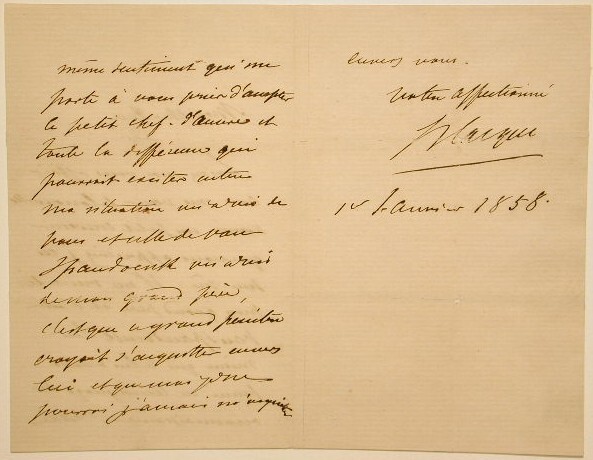 même sentiment qui me
porte à vous prier d'accepter
le petit chef-d'œuvre et
toute la différence qui
pourrait exister entre
ma situation vis à vis de
vous et celle de van
Spaendonck vis à vis
de mon Grand père,
c'est que ce grand peintre
croyait s'acquitter envers
lui et que moi je ne
pourrai jamais m'acquitter
envers vous.
votre affectionné
1er Janvier 1858.